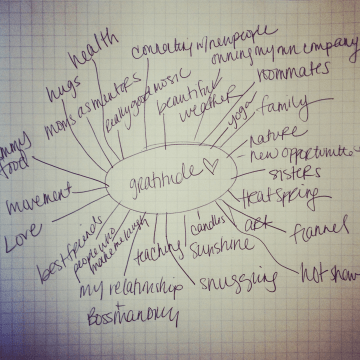 health
connecting w/new people
owning my own company
hugs
moms as mentors
really good music
beautiful
weather
roommates
yoga
family
yummy
food
nature
new opportunities
sisters
movement
gratitude ♡
Love
best friends
people who
make me laugh
teaching
candles
sunshine
art
flannel
my relationship
snuggling